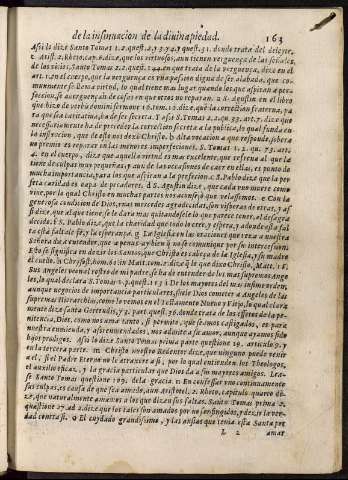 de la insinuacion de la diuina piedad. 163
Assi lo dize Santo Tomas 1. 2. quest. 2, 3, 7 4. y quest. 31. donde trata del deleyte,
2. Arist. 2. Rheto. cap. 6. dize, que los virtuosos, aun tienen verguença de las señales
de los vicios, Santo Tomas 2. 2. quest. 144. en que trata de la verguença, dize en el
art. 1. en el cuerpo, que la verguença es vna passion digna de ser alabada, que co-
munmente se llama virtud, lo qual tiene mas lugar quando los que aspiran a per-
feccion, se auerguençan de cosas en que otros no reparan. 2 S. Agustin en el libro
que hizo de verbis domini sermone 16. tom. 10. dize, que la correccion fraterna, ya
que sea caritatiua, ha de ser secreta. S. Tomas 2. 2. qu. 33. art. 7. dize que
necessariamente ha de preceder la correccion secreta a la publica, lo qual funda en
la instruccion, que de esto nos dexò Christo. b Alta vocacion a que responde, sierà
no premio es reparar en las menores imperfecciones. S. Tomas 1. 2. qu. 73. art.
4. en el cuerpo, dize que aquella virtud es mas excelente, que refrena al que la
tiene de culpas muy pequeñas, y aun de las ocasiones de caer en ellas, es punto de
mucha importancia, para los que aspiran a la perfeccion. c S. Pablo dize, que la per-
feta caridad es capa de pecadores. d S. Agustin dize, que cada vno muere como
viue, por lo qual Christo muchas partes nos aconsejò que velassemos. e Con la
generosa condicion de Dios, vnas mercedes agradecidas, son visperas de otras, y assi
dize, que al que tiene, se le darà mas quitandosele lo que parece tener, al desagra
decido. f S. Pablo dize, que la charidad que todo lo cree, y espera, y adonde esta fal
ta està falta la fè, y la esperança. g La Iglesia en las oraciones que reza a nuestra
Señora da a entender, que a penas ay bien q̃ no se comunique por su intercession.
Esso se significa en dezir los Santos, que Christo es cabeça de la Iglesia, y su madre
el cuello. h Chrysost. hom. 60 in Matt. tomo 2. dize q̃ lo que dixo Christo, Matt. 18.
Sus Angeles veen al rostro de mi padre, se ha de entender de los mas supremos Ange
les, lo qual declara S. Tomas 1. p. quest. 113. i De los mayores del mas infimo orden,
aunque negocios de importancia particulares, suele Dios cometer a Angeles de las
supremas Hierarchias, como lo vemos en el Testamento Nueuo y Viejo, lo qual clara
mente dize santa Gertrudis, y 3. part. quest. 36. donde trata de los efetos de la pe-
nitencia, Dios, como nos ama tanto, si permite, que seamos castigados, es para
nuestra enmienda, y assi enmendados, nos admite a su amor, aunque ayamos sido
hijos prodigos. Assi lo dize Santo Tomas prima parte questione 19. articulo 9. y
en la tercera parte. m Christo nuestro Redentor dize, que ninguno puede venir
a el, si el Padre Eterno no le atraxere assi, por lo qual entienden los Theologos,
el auxilio eficaz, y la gracia particular que Dios da a sus mayores amigos. Lea-
se Santo Tomas questione 109. de la gracia. n En confessar vno continuamente
sus culpas, es causa de que sea amado, aun Aristotel. 2. Rheto. capitulo quarto di-
ze, que naturalmente amamos a los que dizen sus faltas. Santo Tomas prima 2.
questione 27. ad 2. dize que los tales son amados por no ser fingidos, y dezir la ver-
dad contra si. o El cuydado grandissimo, y las ansias que tenia esta Santa por
L 2 amar